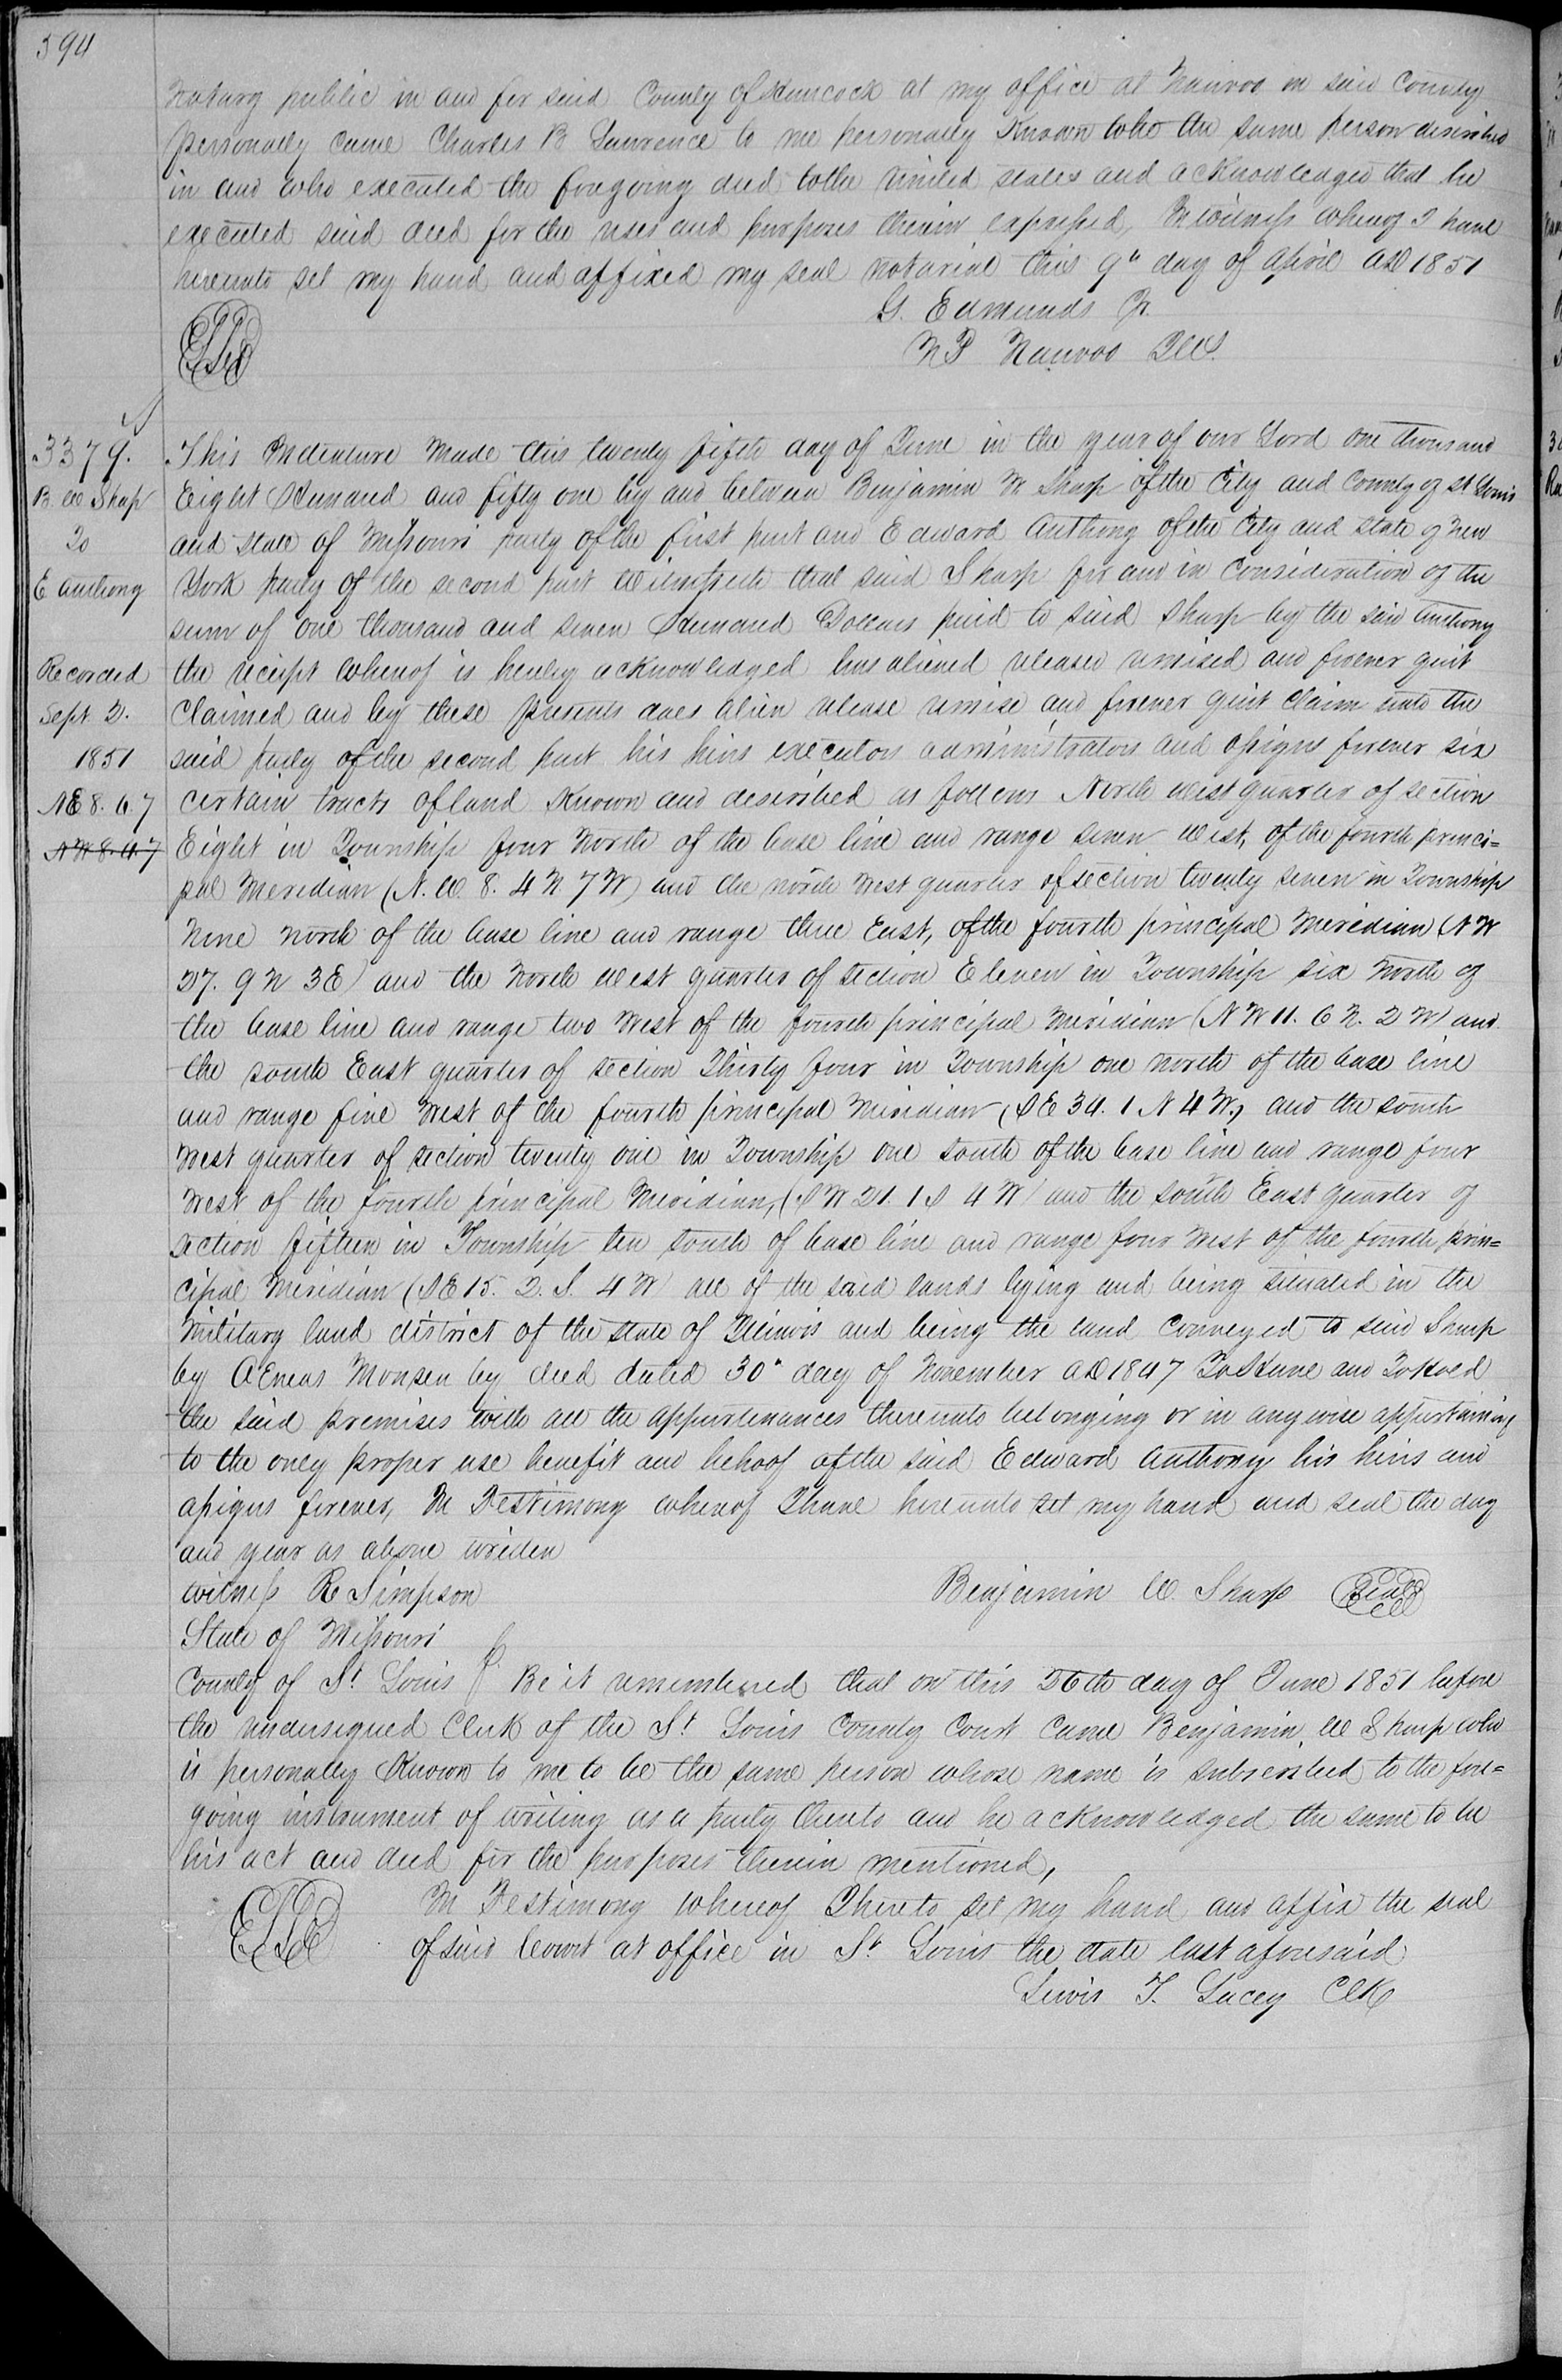 394
Notary public in and for said County of Hancock at my office at Nauvoo in said County
personally came Charles B Lawrence to me personally Known to be the same person described
in and who executed the foregoing deed to the United states and acknowledged that he
executed said deed for the uses and purposes therein expressed, In witness whereof I have
hereunto set my hand and affixed my seal notarial this 9" day of April AD 1851
G. Edmunds Jr.
N P Nauvoo Ills.
3379.
B W Sharp
To
E Anthony
Recorded
Sept 2.
1851
NE 8. 6. 7
NW 8. 4. 7
This Indenture Made this twenty fifth day of June in the year of our Lord one thousand
Eight Hundred and fifty one by and between Benjamin W Sharp of the City and County of St Louis
and state of Missouri party of the first part and Edward Anthony of the City and state of New
York party of the second part Witnesseth that said Sharp for and in Consideration of the
sum of one thousand and seven Hundred Dollars paid to said Sharp by the said Anthony
the receipt whereof is hereby acknowledged has aliened released remised and forever quit
Claimed and by these presents does alien release remise and forever quit Claim unto the
said party of the second part his heirs executors administrators and assigns forever six
certain tracts of land Known and described as follows North West quarter of section
Eight in Township four North of the base line and range seven West, of the fourth princi=
pal Meridian (N. W. 8. 4 N 7 W) and the north West quarter of section twenty seven in Township
Nine north of the base line and range three East, of the fourth principal Meridian (NW
27. 9 N 3 E) and the North West quarter of section Eleven in Township six North of
the base line and range two West of the fourth principal Meridian (NW 11. 6 N. 2 W) and
the south East quarter of section Thirty four in Township one north of the base line
and range five West of the fourth principal Meridian (SE 34. 1 N 4 W.) and the south
West quarter of section twenty one in Township one south of the base line and range four
West of the fourth principal Meridian, (SW 21. 1 S 4 W) and the south East quarter of
section fifteen in Township ten south of base line and range four West of the fourth prin=
cipal Meridian (SE 15. 2. S. 4 W) all of the said lands lying and being situated in the
Military land district of the state of Illinois and being the land Conveyed to said Sharp
by AEneas Monsen by deed dated 30" day of November AD 1847 To Have and To Hold
the said premises with all the appurtenances thereunto belonging or in anywise appurtaining
to the only proper use benefit and behoof of the said Edward Anthony his heirs and
assigns forever, In Testimony whereof I have hereunto set my hand and seal the day
and year as above writen
Witness R Simpson Benjamin W. Sharp Seal
State of Missouri
County of St Louis } Be it remembered that on this 26th day of June 1851 before
the undersigned Clerk of the St Louis County Court Came Benjamin W Sharp who
is personally Known to me to be the same person whose name is subscribed to the fore=
going instrument of writing as a party thereto and he acknowledged the same to be
his act and deed for the purposes therein mentioned,
In Testimony whereof I hereto set my hand and affix the seal
of said Court at office in St Louis the date last aforesaid
Lewis T. Lacey Clk